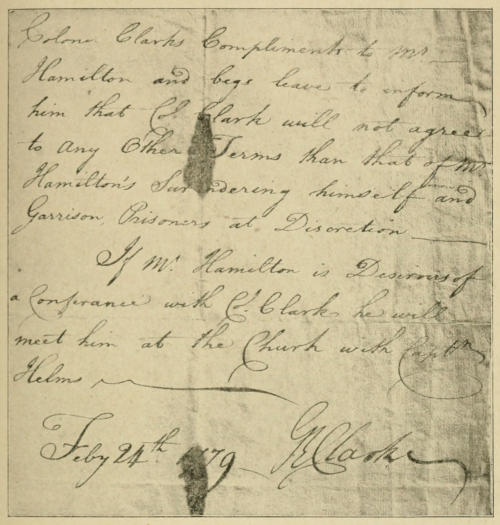 Colonel Clarks Compliments to Mr
Hamilton and begs leave to inform
him that Co.l Clark will not agree
to any Other Terms than that of Mr
Hamilton's Surendering himself and
Garrison, Prisoners at Discretion
If Mr. Hamilton is Desirous of
a Conferance with Co.l Clark he will
meet him at the Church with Captn
Helms
Feby 24th 1779 GR Clark